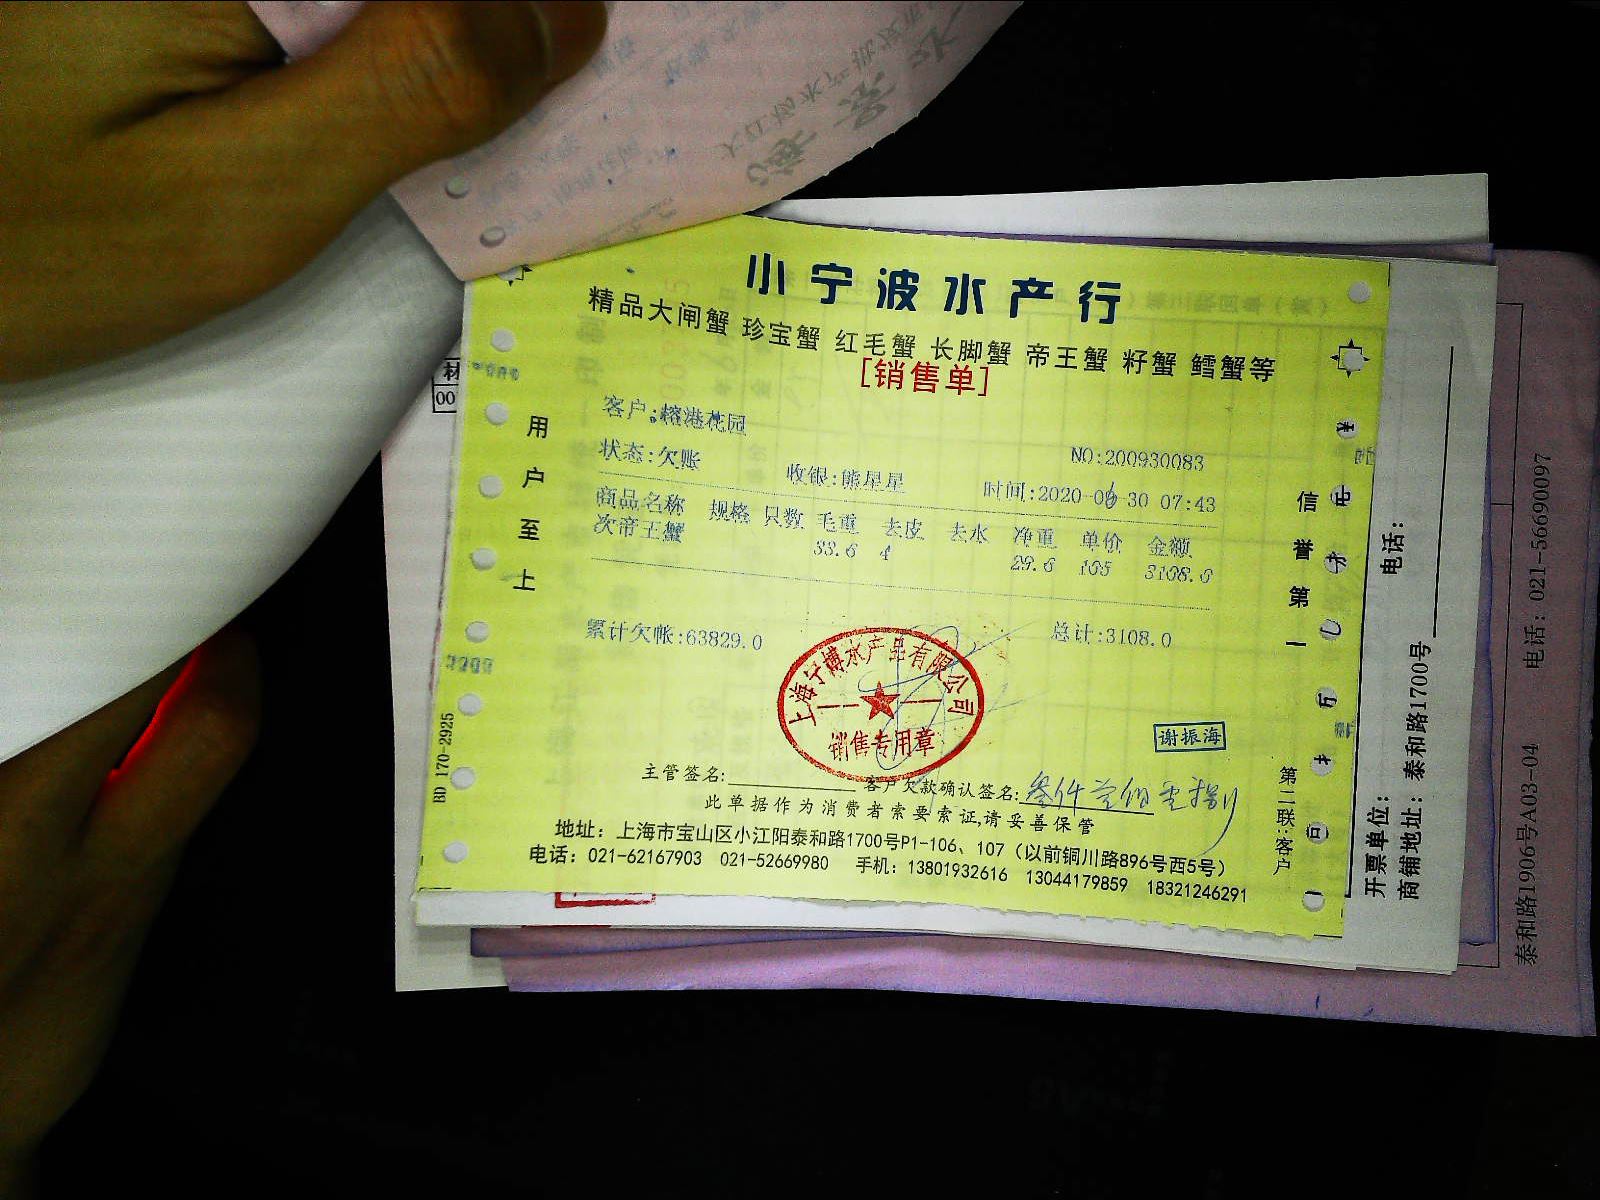 小宁波水产行
精品大闸蟹 珍宝蟹 红毛蟹 长脚蟹 帝王蟹 籽蟹 鳕蟹等
[销售单]
客户:榕港花园
状态:欠账 收银:熊星星 NO:200930083
时间:2020-09-30 07:43
商品名称 规格 只数 毛重 去皮 去水 净重 单价 金额
次帝王蟹 33.6 4 29.6 105 3108.0
累计欠帐:63829.0 总计:3108.0
上海宁博水产品有限公司
销售专用章
谢振海
主管签名: 客户欠款确认签名:叁仟壹佰零捌
此单据作为消费者索要索证,请妥善保管
地址：上海市宝山区小江阳泰和路1700号P1-106、107（以前铜川路896号西5号）
电话：021-62167903 021-52669980 手机：13801932616 13044179859 18321246291
用户至上
信誉第一
第二联:客户
BD 170-2925
开票单位： 电话：
商铺地址：泰和路1700号
泰和路1906号A03-04 电话：021-56690097